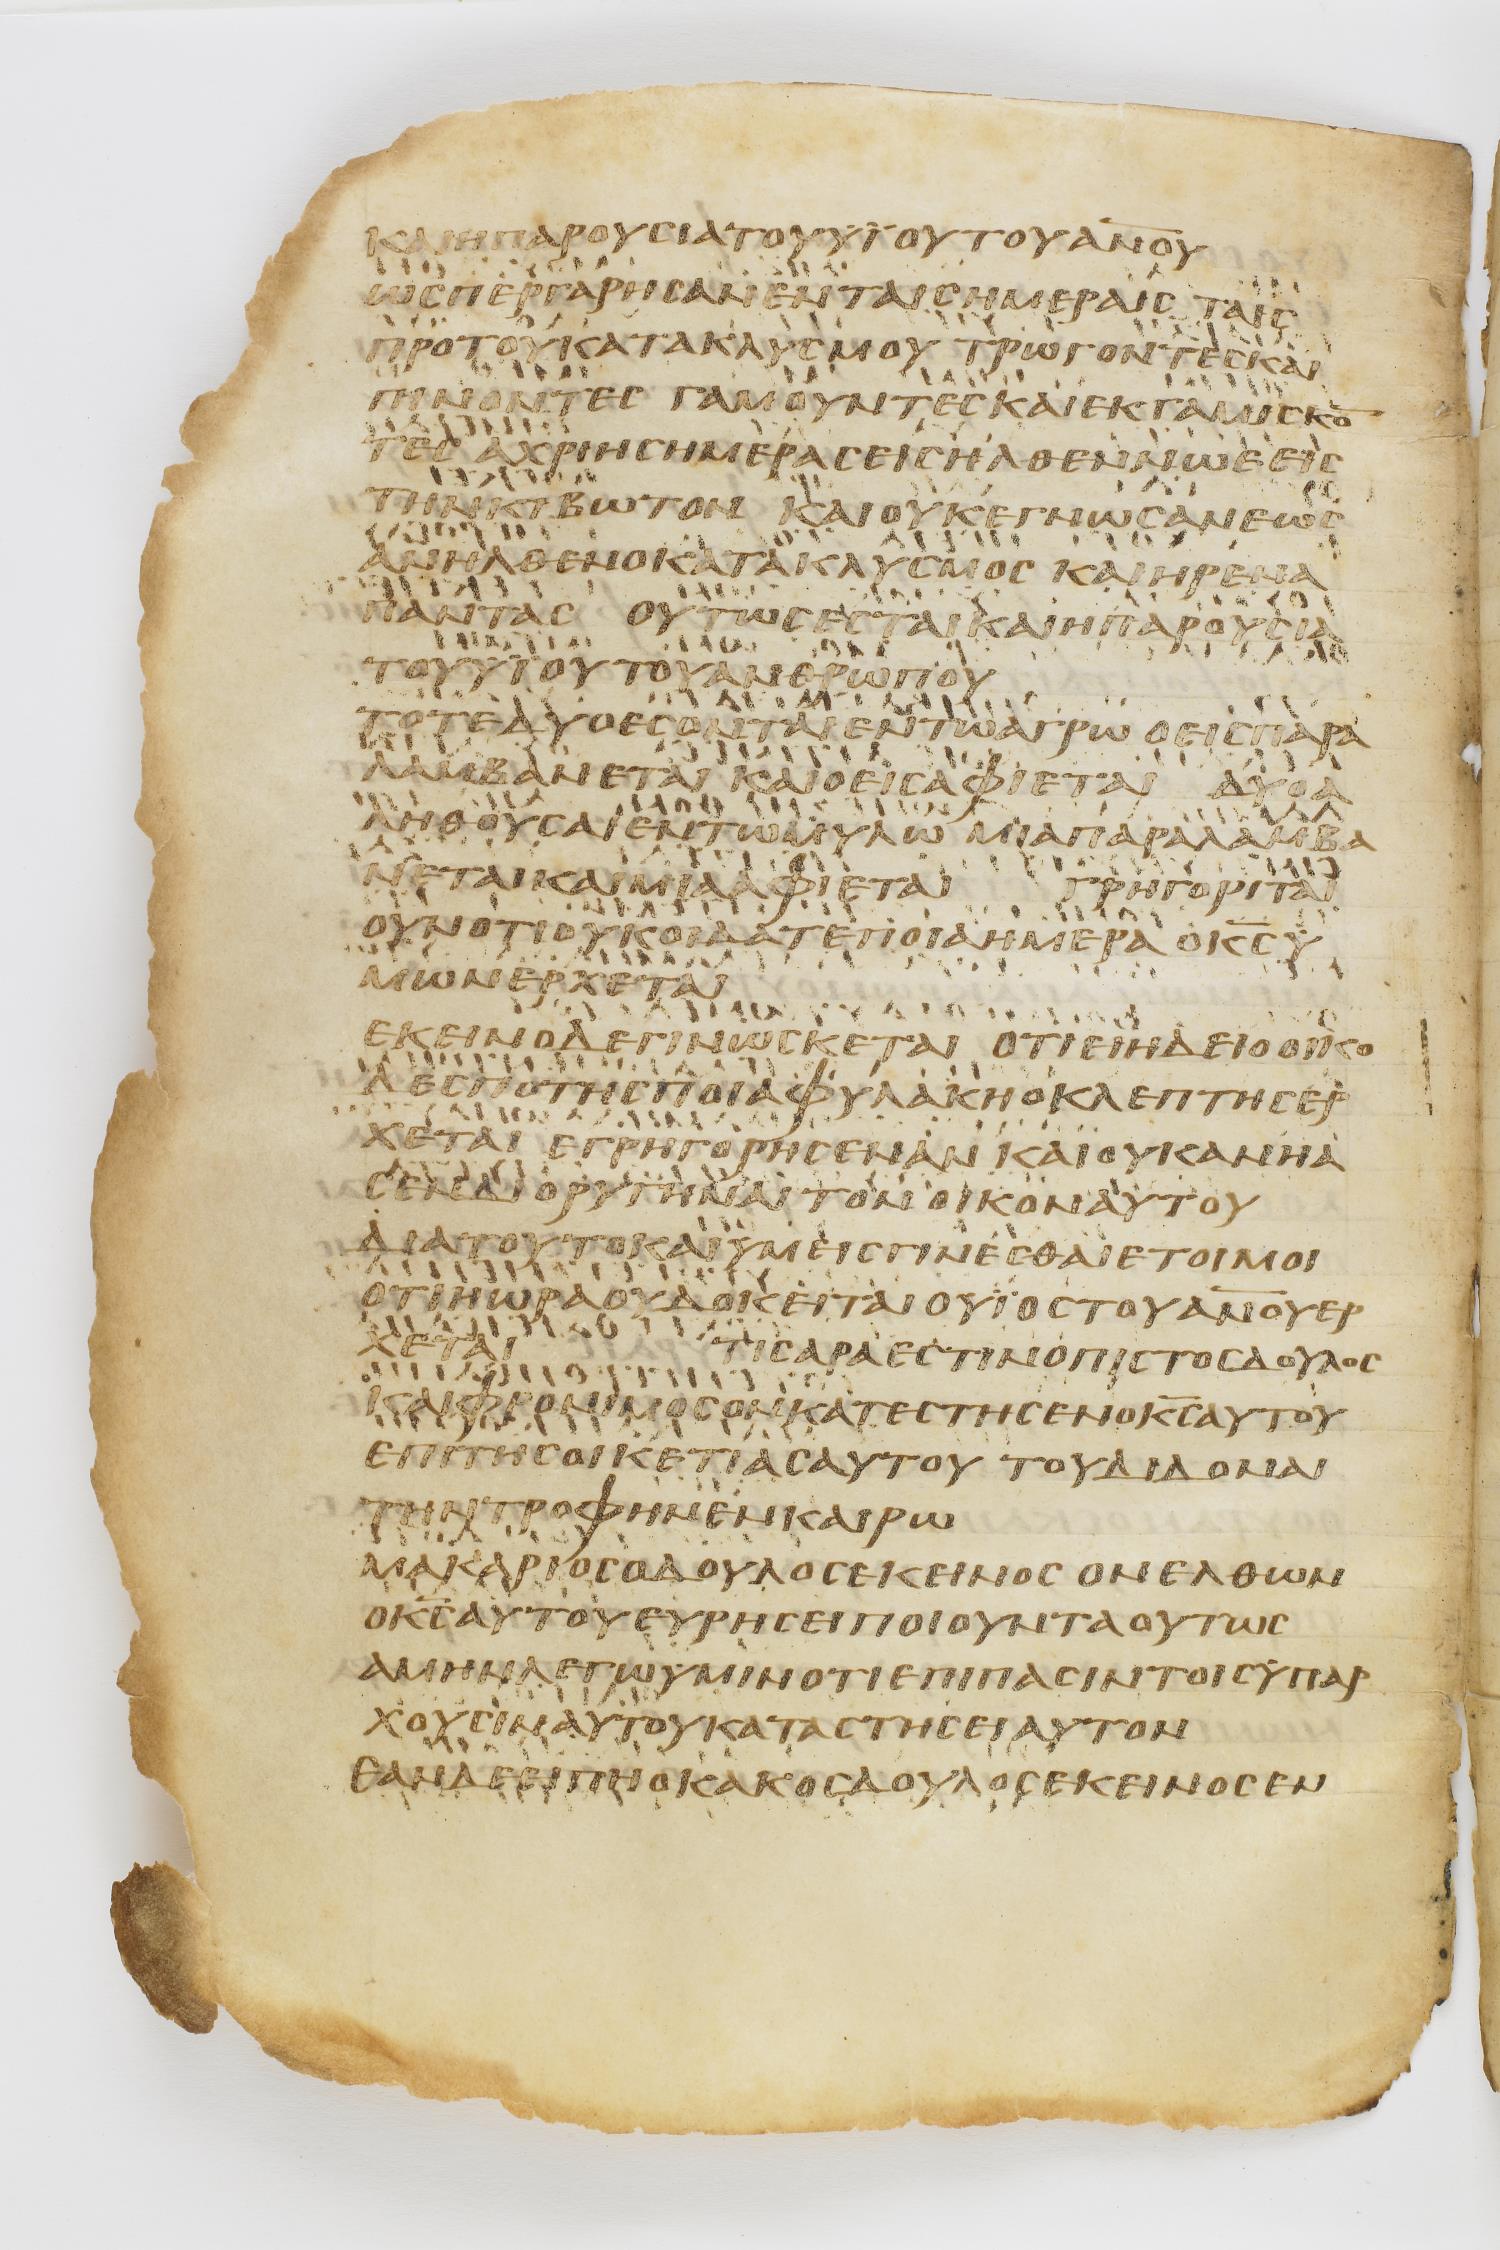 ΚΑΙΗΠΑΡΟΥCΙΑΤΟΥΥΪΟΥΤΟΥΑΝ̅Ο̅Υ
ΩCΠΕΡΓΑΡΗCΑΝΕΝΤΑΙCΗΜΕΡΑΙC ΤΑΙC
ΠΡΟΤΟΥΚΑΤΑΚΛΥCΜΟΥ ΤΡΩΓΟΝΤΕCΚΑΙ
ΠΙΝΟΝΤΕC ΓΑΜΟΥΝΤΕCΚΑΙΕΚΓΑΜΙCΚΟ̅
ΤΕC ΑΧΡΙΗCΗΜΕΡΑCΕΙCΗΛΘΕΝΝΩΕΕΙC
ΤΗΝΚΙΒΩΤΟΝ ΚΑΙΟΥΚΕΓΝΩCΑΝΕΩC
ΑΝΗΛΘΕΝΟΚΑΤΑΚΛΥCΜΟC ΚΑΙΗΡΕΝΑ
ΠΑΝΤΑC ΟΥΤΩCΕCΤΑΙΚΑΙΗΠΑΡΟΥCΙΑ
ΤΟΥΥΪΟΥΤΟΥΑΝΘΡΩΠΟΥ
ΤΟΤΕΔΥΟΕCΟΝΤΑΙΕΝΤΩΑΓΡΩ ΟΕΙCΠΑΡΑ
ΛΑΜΒΑΝΕΤΑΙ ΚΑΙΟΕΙCΑΦΙΕΤΑΙ ΔΥΟΑ
ΛΗΘΟΥCΑΙΕΝΤΩΜΥΛΩ ΜΙΑΠΑΡΑΛΑΜΒΑ
ΝΕΤΑΙΚΑΙΜΙΑΑΦΙΕΤΑΙ ΓΡΗΓΟΡΙΤΑΙ
ΟΥΝΟΤΙΟΥΚΟΙΔΑΤΕΠΟΙΑΗΜΕΡΑ ΟΚ̅C̅Υ
ΜΩΝΕΡΧΕΤΑΙ
ΕΚΕΙΝΟΔΕΓΙΝΩCΚΕΤΑΙ ΟΤΙΕΙΗΔΕΙΟΟΙΚΟ
ΔΕCΠΟΤΗCΠΟΙΑΦΥΛΑΚΗΟΚΛΕΠΤΗCΕΡ
ΧΕΤΑΙ ΕΓΡΗΓΟΡΗCΕΝΑΝ ΚΑΙΟΥΚΑΝΗΑ
CΕΝΔΙΟΡΥΓΗΝΑΙ ΤΟΝΟΙΚΟΝΑΥΤΟΥ
ΔΙΑΤΟΥΤΟΚΑΙΥΜΕΙCΓΙΝΕCΘΑΙΕΤΟΙΜΟΙ
ΟΤΙΗΩΡΑΟΥΔΟΚΕΙΤΑΙ ΟΥΪΟCΤΟΥΑΝ̅Ο̅ΥΕΡ
ΧΕΤΑΙ ΤΙCΑΡΑΕCΤΙΝΟΠΙCΤΟCΔΟΥΛΟC
ΚΑΙΦΡΟΝΙΜΟCΟΝΚΑΤΕCΤΗCΕΝΟΚ̅C̅ΑΥΤΟΥ
ΕΠΙΤΗCΟΙΚΕΤΙΑCΑΥΤΟΥ ΤΟΥΔΙΔΟΝΑΙ
ΤΗΝΤΡΟΦΗΝΕΝΚΑΙΡΩ
ΜΑΚΑΡΙΟCΟΔΟΥΛΟCΕΚΕΙΝΟC ΟΝΕΛΘΩΝ
ΟΚ̅C̅ΑΥΤΟΥΕΥΡΗCΕΙΠΟΙΟΥΝΤΑΟΥΤΩC
ΑΜΗΝΛΕΓΩΥΜΙΝΟΤΙΕΠΙΠΑCΙΝΤΟΙCΥΠΑΡ
ΧΟΥCΙΝΑΥΤΟΥΚΑΤΑCΤΗCΕΙΑΥΤΟΝ
ΕΑΝΔΕΕΙΠΗΟΚΑΚΟCΔΟΥΛΟCΕΚΕΙΝΟCΕΝ